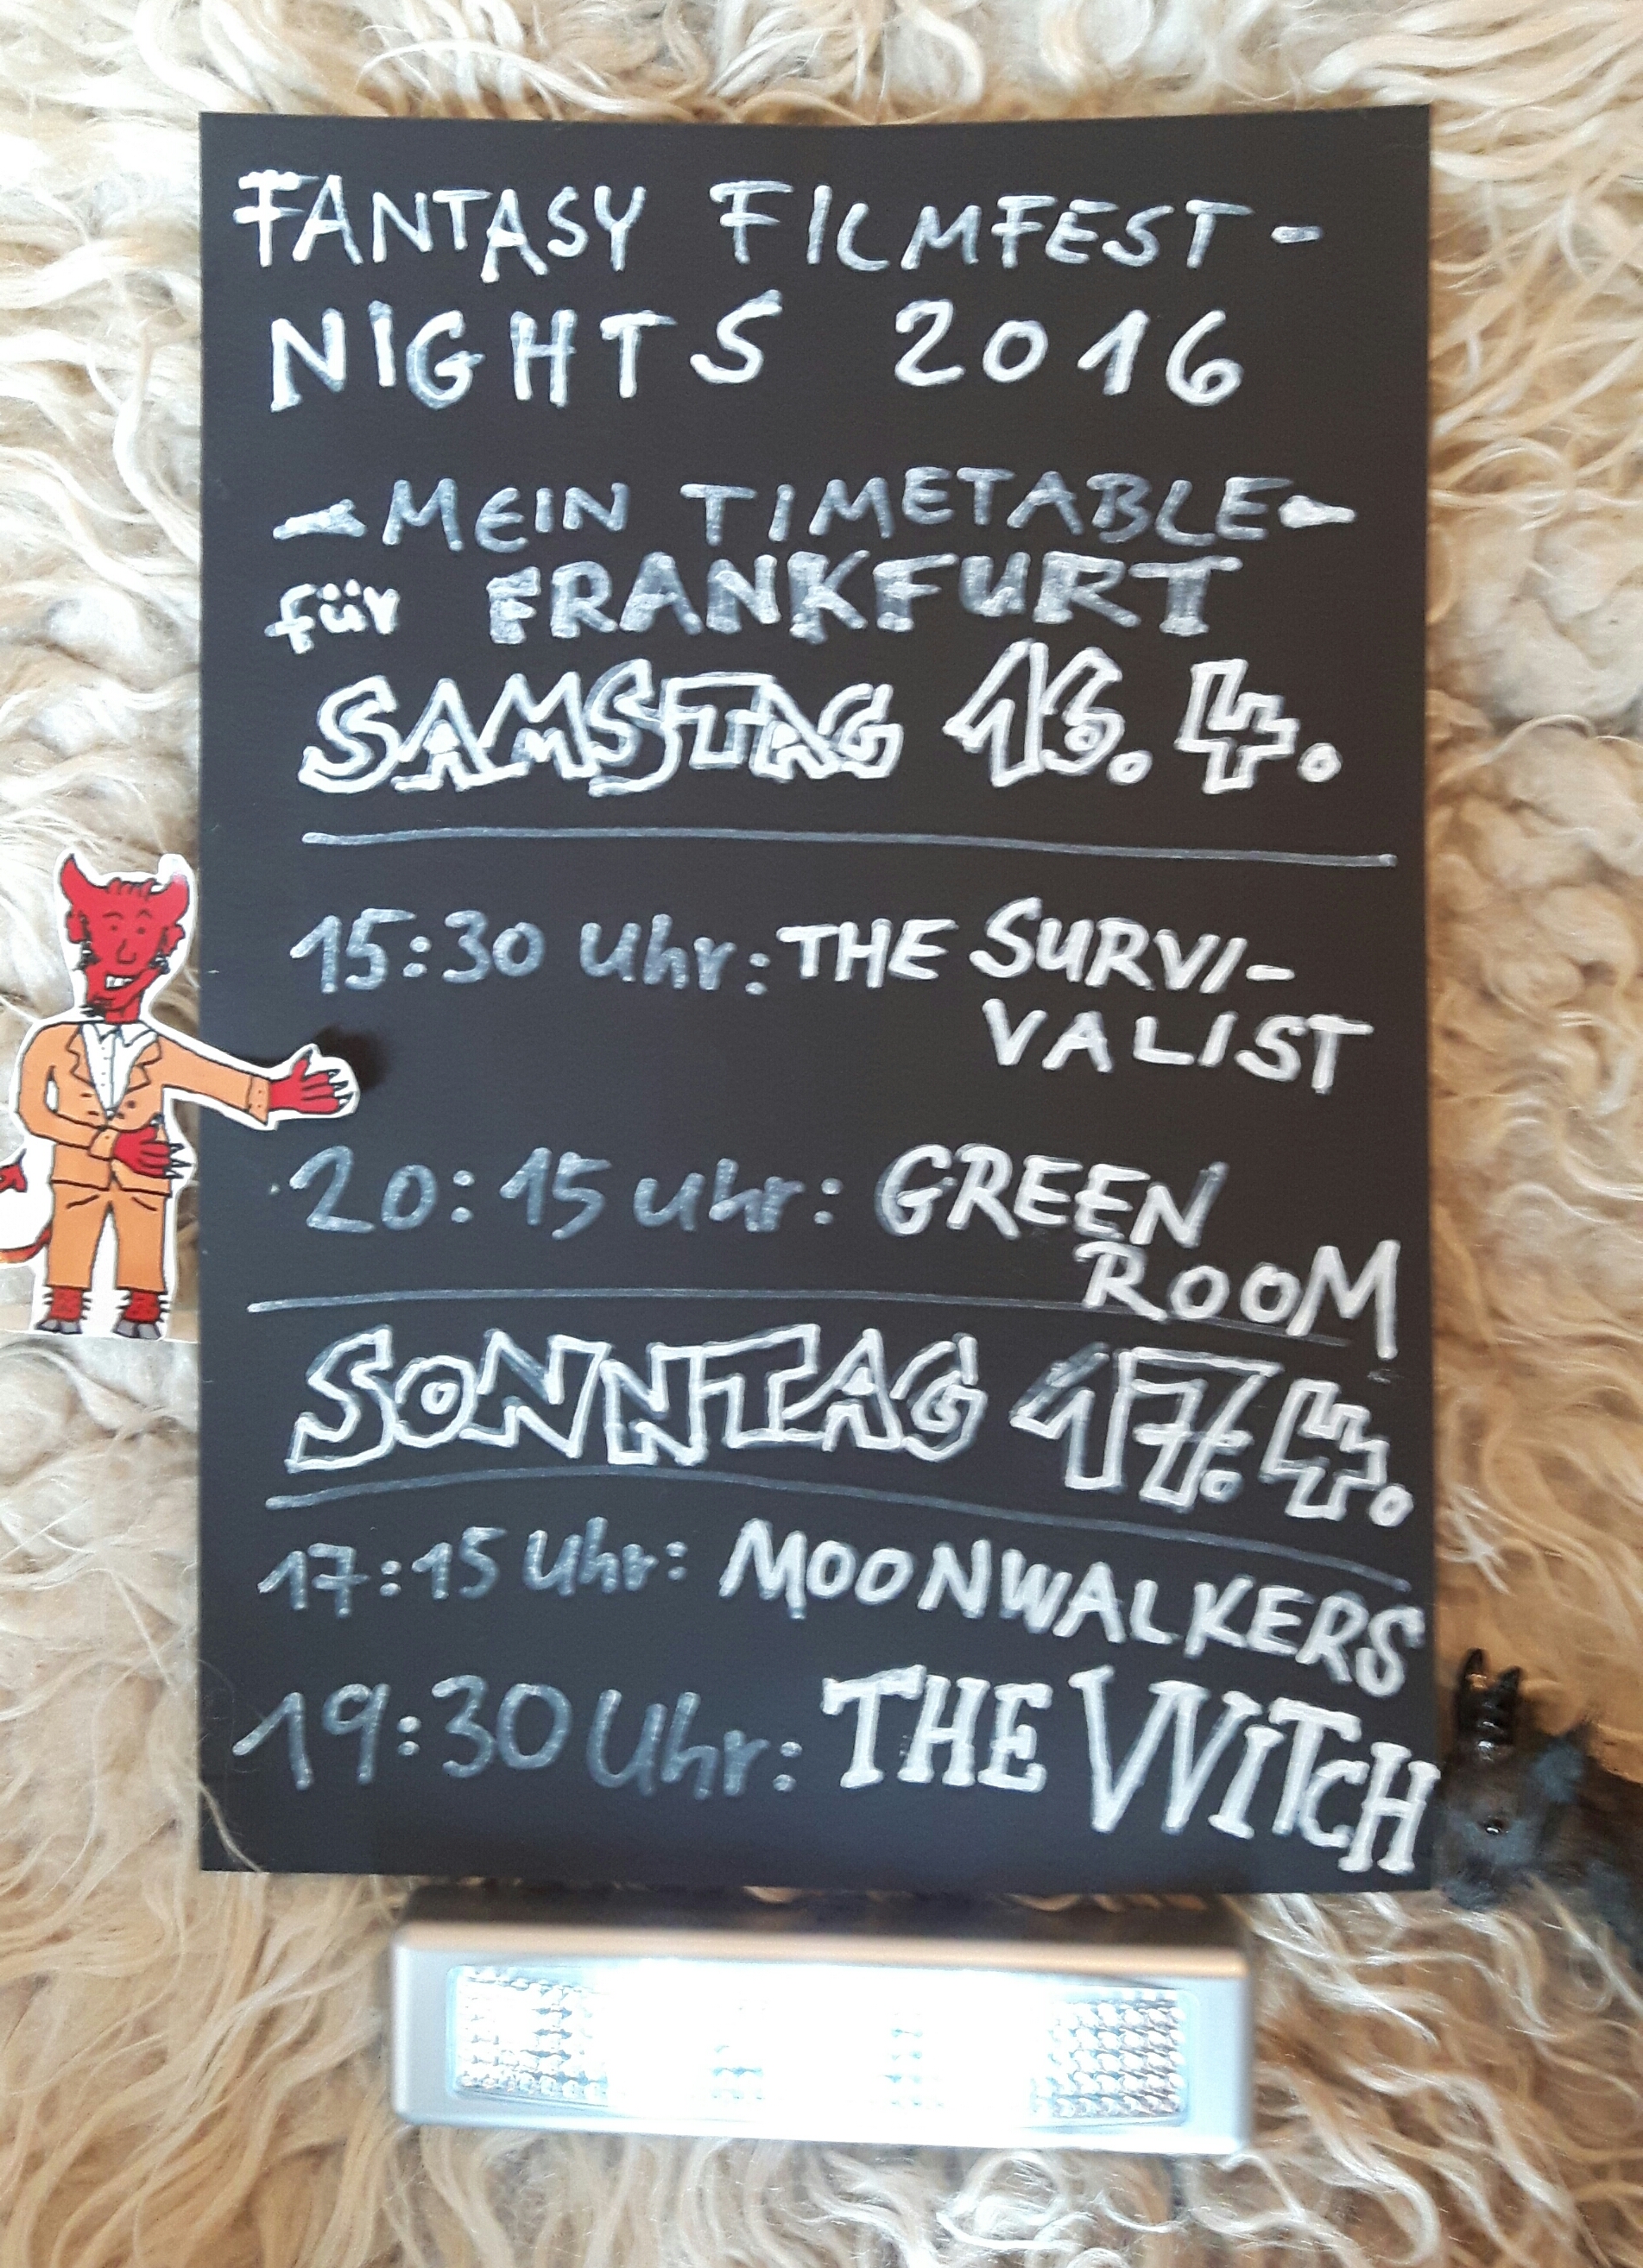 FANTASY FILMFEST-
NIGHTS 2016
- MEIN TIMETABLE -
für FRANKFURT
SAMSTAG 16.4.
15:30 Uhr: THE SURVI-
VALIST
20:15 Uhr: GREEN
ROOM
SONNTAG 17.4.
17:15 Uhr: MOONWALKERS
19:30 Uhr: THE VVITCH